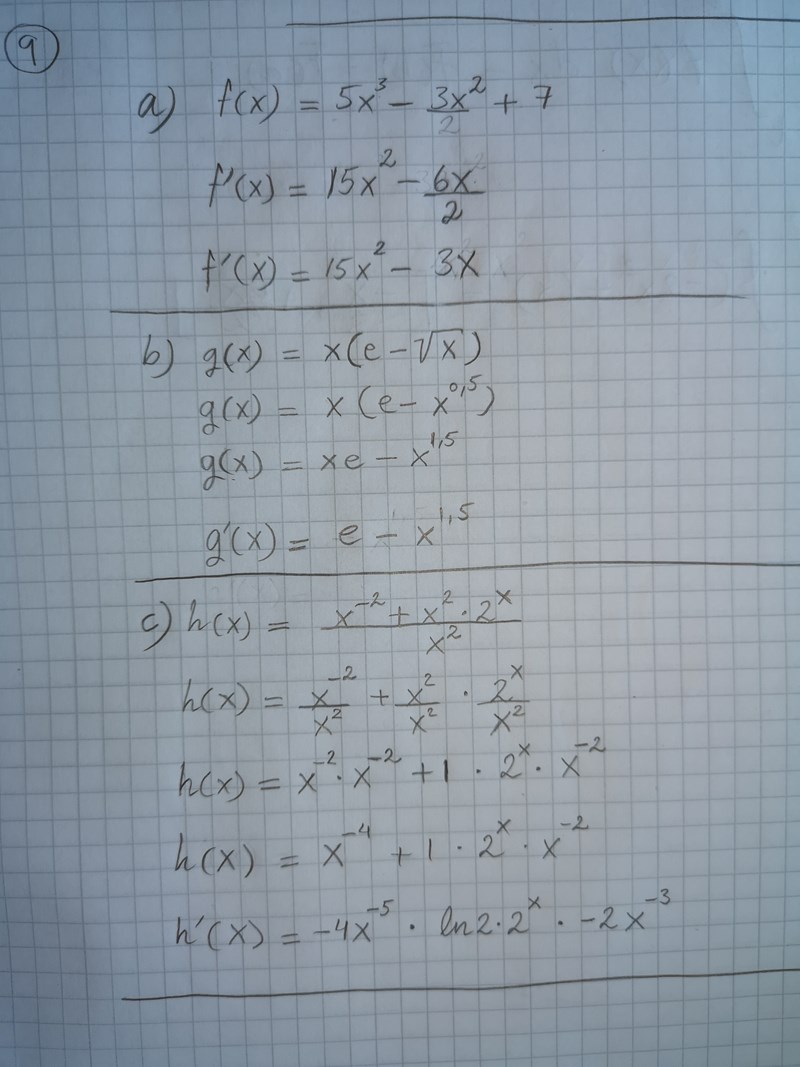 9
a) f(x) = 5x³ - 3x²/2 + 7
f'(x) = 15x² - 6x/2
f'(x) = 15x² - 3x
b) g(x) = x(e - √x)
g(x) = x(e - x^0,5)
g(x) = xe - x^1,5
g'(x) = e - x^1,5
c) h(x) = (x^-2 + x² · 2^x)/x²
h(x) = x^-2/x² + x²/x² · 2^x/x²
h(x) = x^-2 · x^-2 + 1 · 2^x · x^-2
h(x) = x^-4 + 1 · 2^x · x^-2
h'(x) = -4x^-5 · ln2 · 2^x · -2x^-3